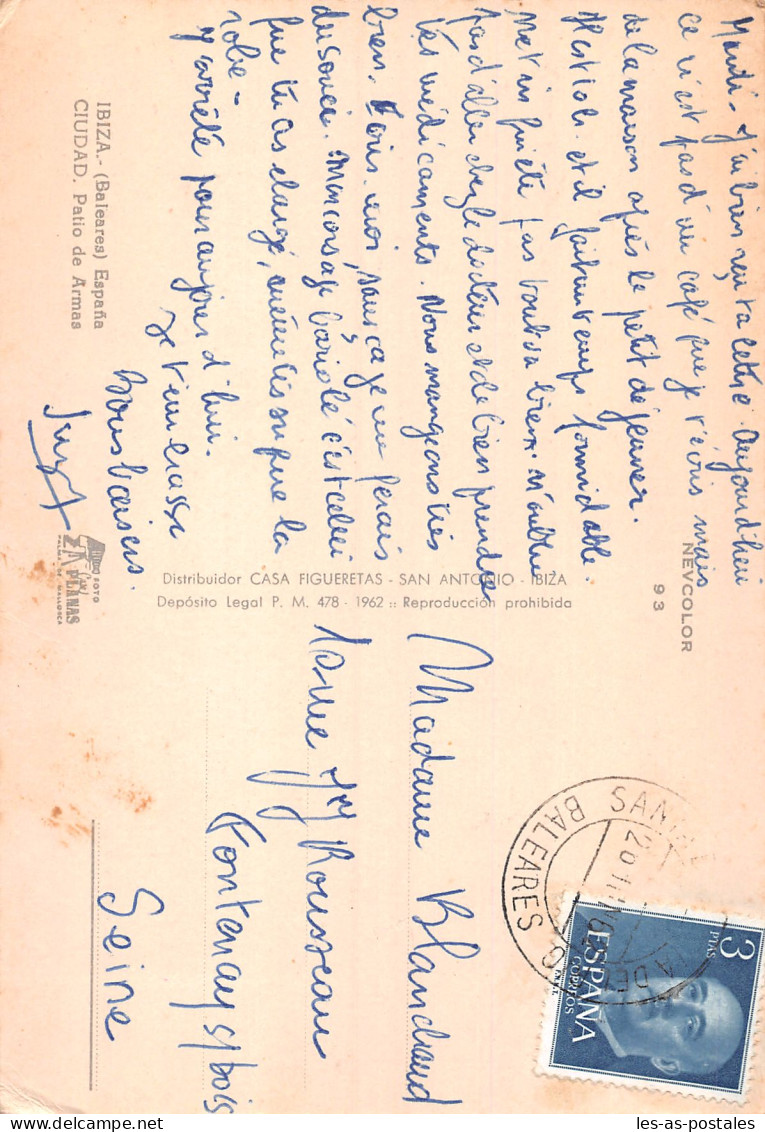 Mardi - J'ai bien reçu ta lettre. Aujourd'hui
ce n'est pas d'un café que je t'écris mais
de la maison après le petit déjeuner.
et il fait un temps formidable.
Ne t'inquiète pas tout va bien. N'oublie
pas d'aller chez le docteur et de bien prendre
tes médicaments. Nous mangeons très
bien. sans ça je me ferais
du souci. Mon corsage bariolé c'est celui
que tu as élargi, en même tissu que la
robe -
J'arrête pour aujourd'hui.
Je t'embrasse
Bons baisers.
IBIZA.- (Baleares) España
CIUDAD. Patio de Armas
NEVCOLOR
93
Distribuidor CASA FIGUERETAS - SAN ANTONIO - IBIZA
Depósito Legal P. M. 478 - 1962 :: Reproducción prohibida
FOTO
PLANAS
PALMA DE MALLORCA
Madame Blanchard
rue JJ Rousseau
Fontenay s/bois
Seine
BALEARES
3
PTAS
ESPAÑA
CORREOS
les-as-postales